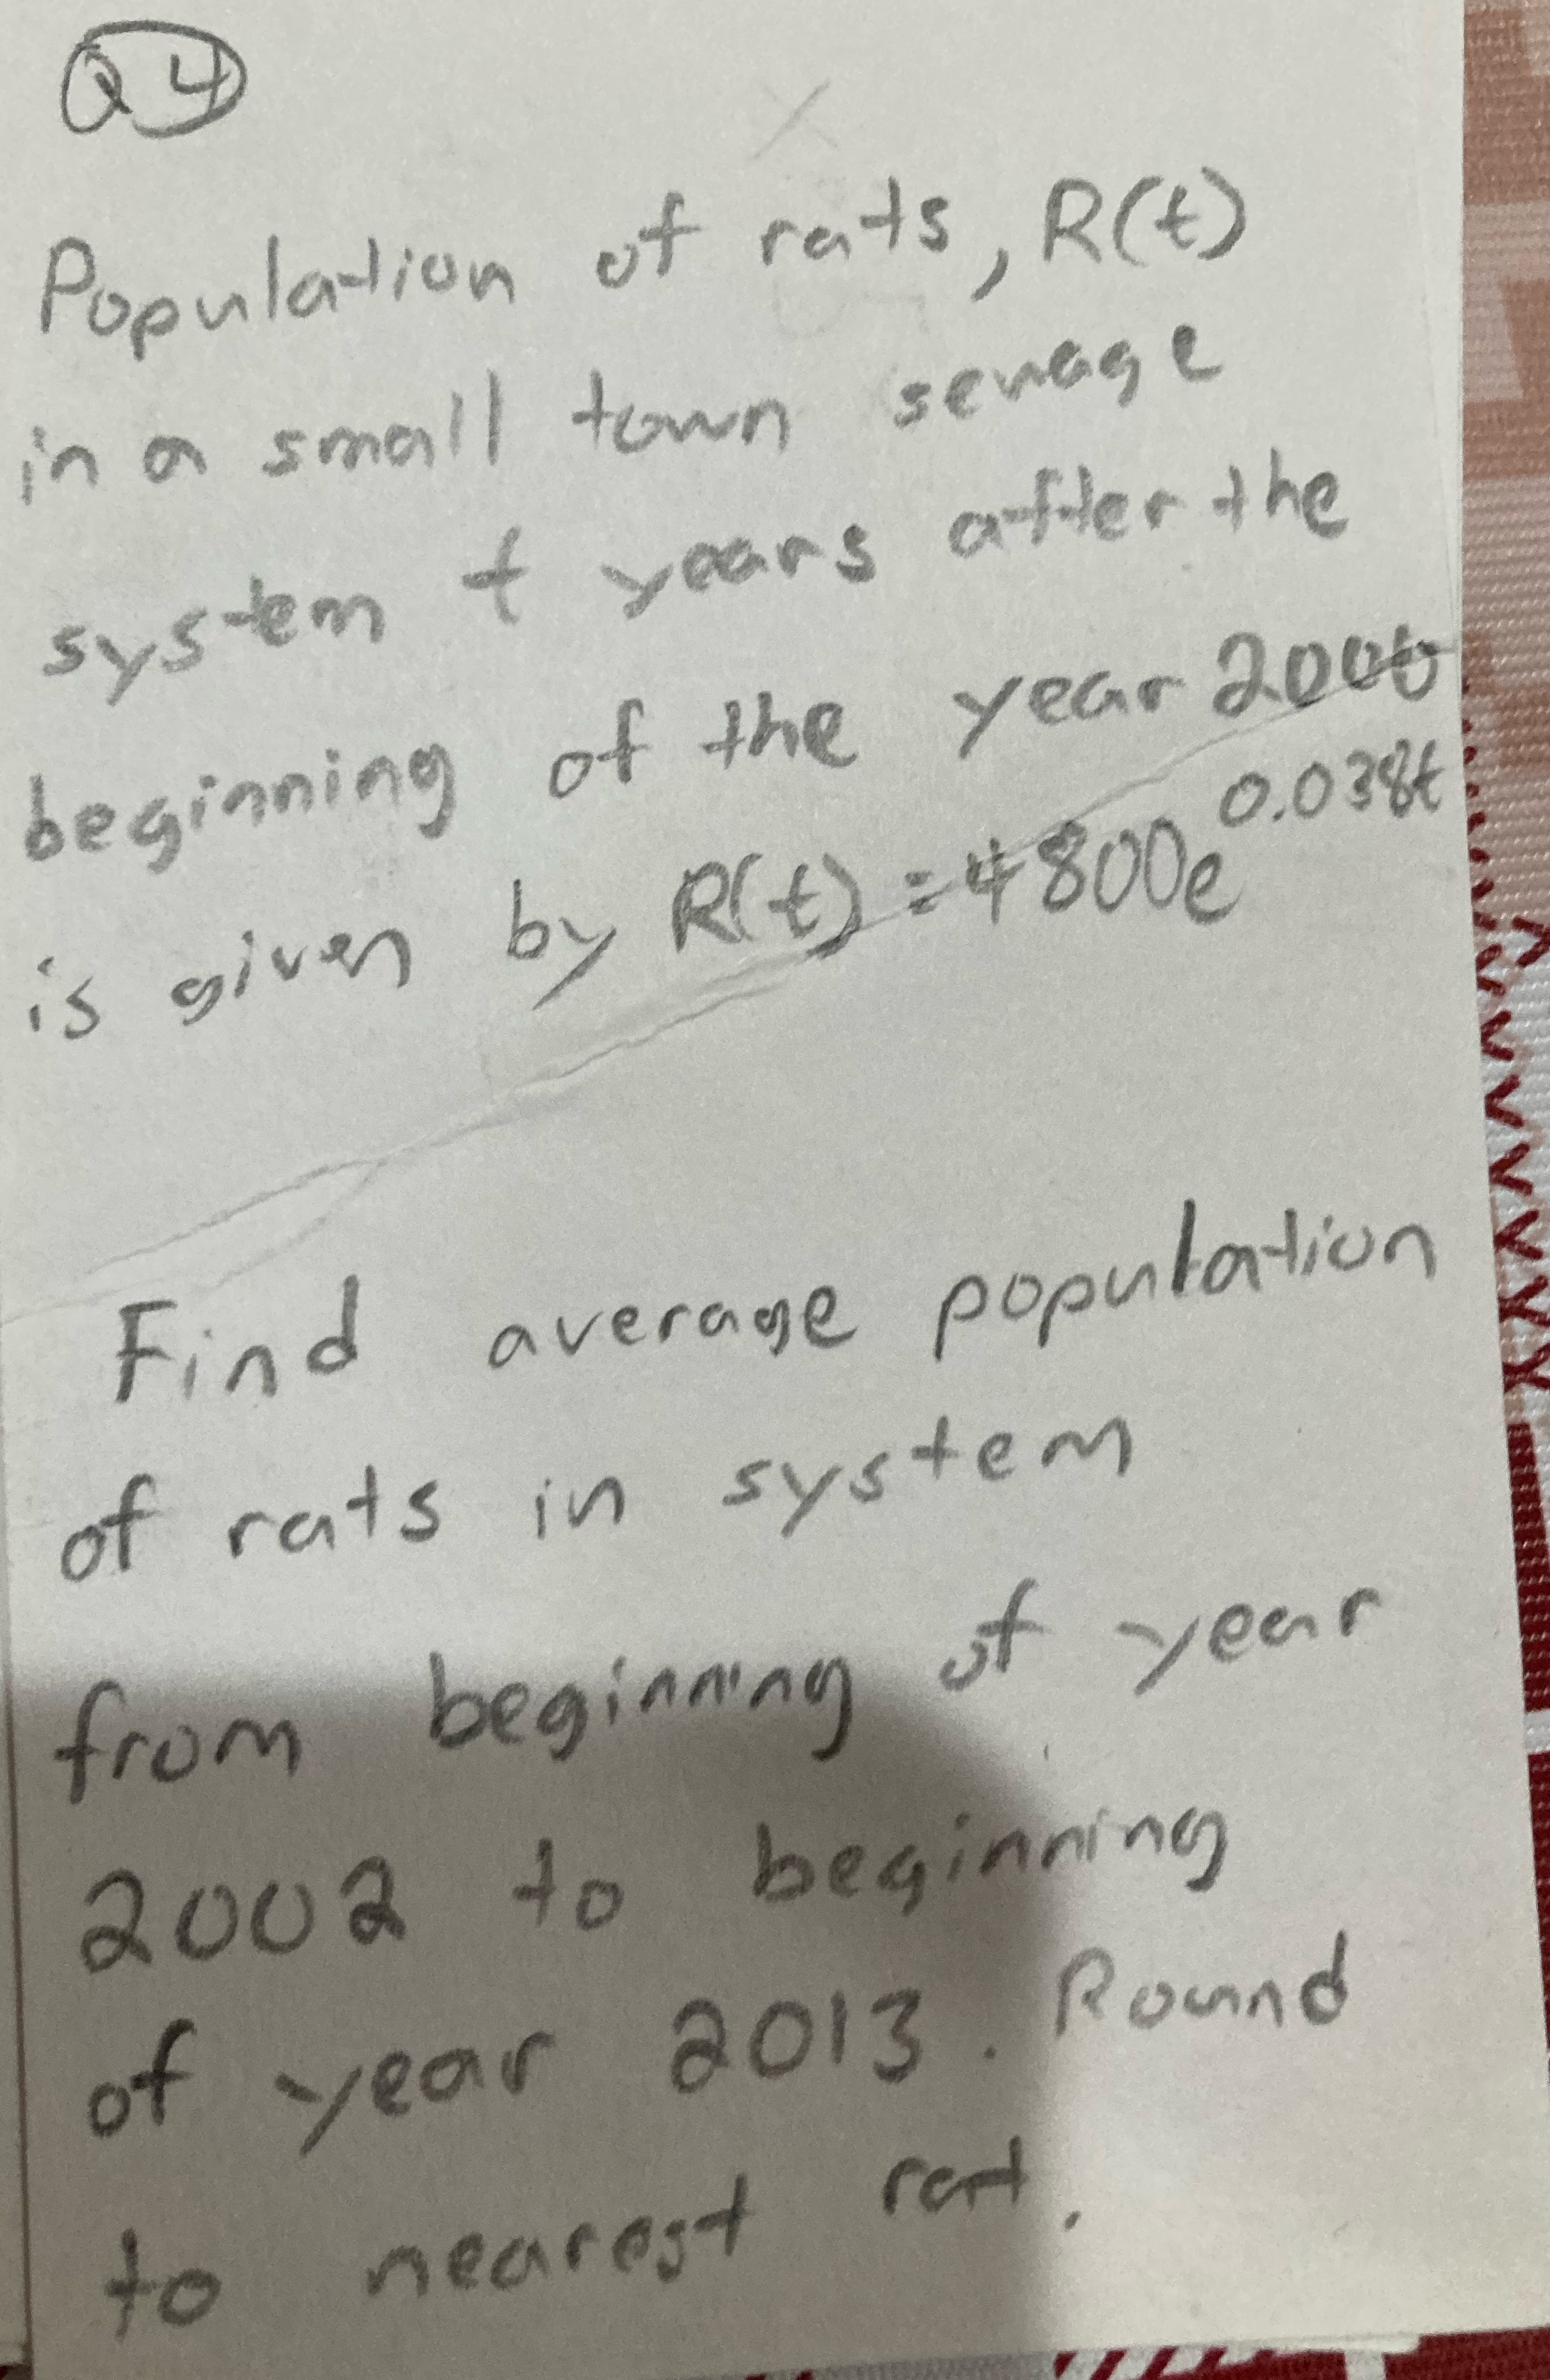 Q4
Population of rats, R(t)
in a small town sewage
system t years after the
beginning of the year 2000
is given by R(t) = 4800e^0.038t
Find average population
of rats in system
from beginning of year
2002 to beginning
of year 2013. Round
to nearest rat.